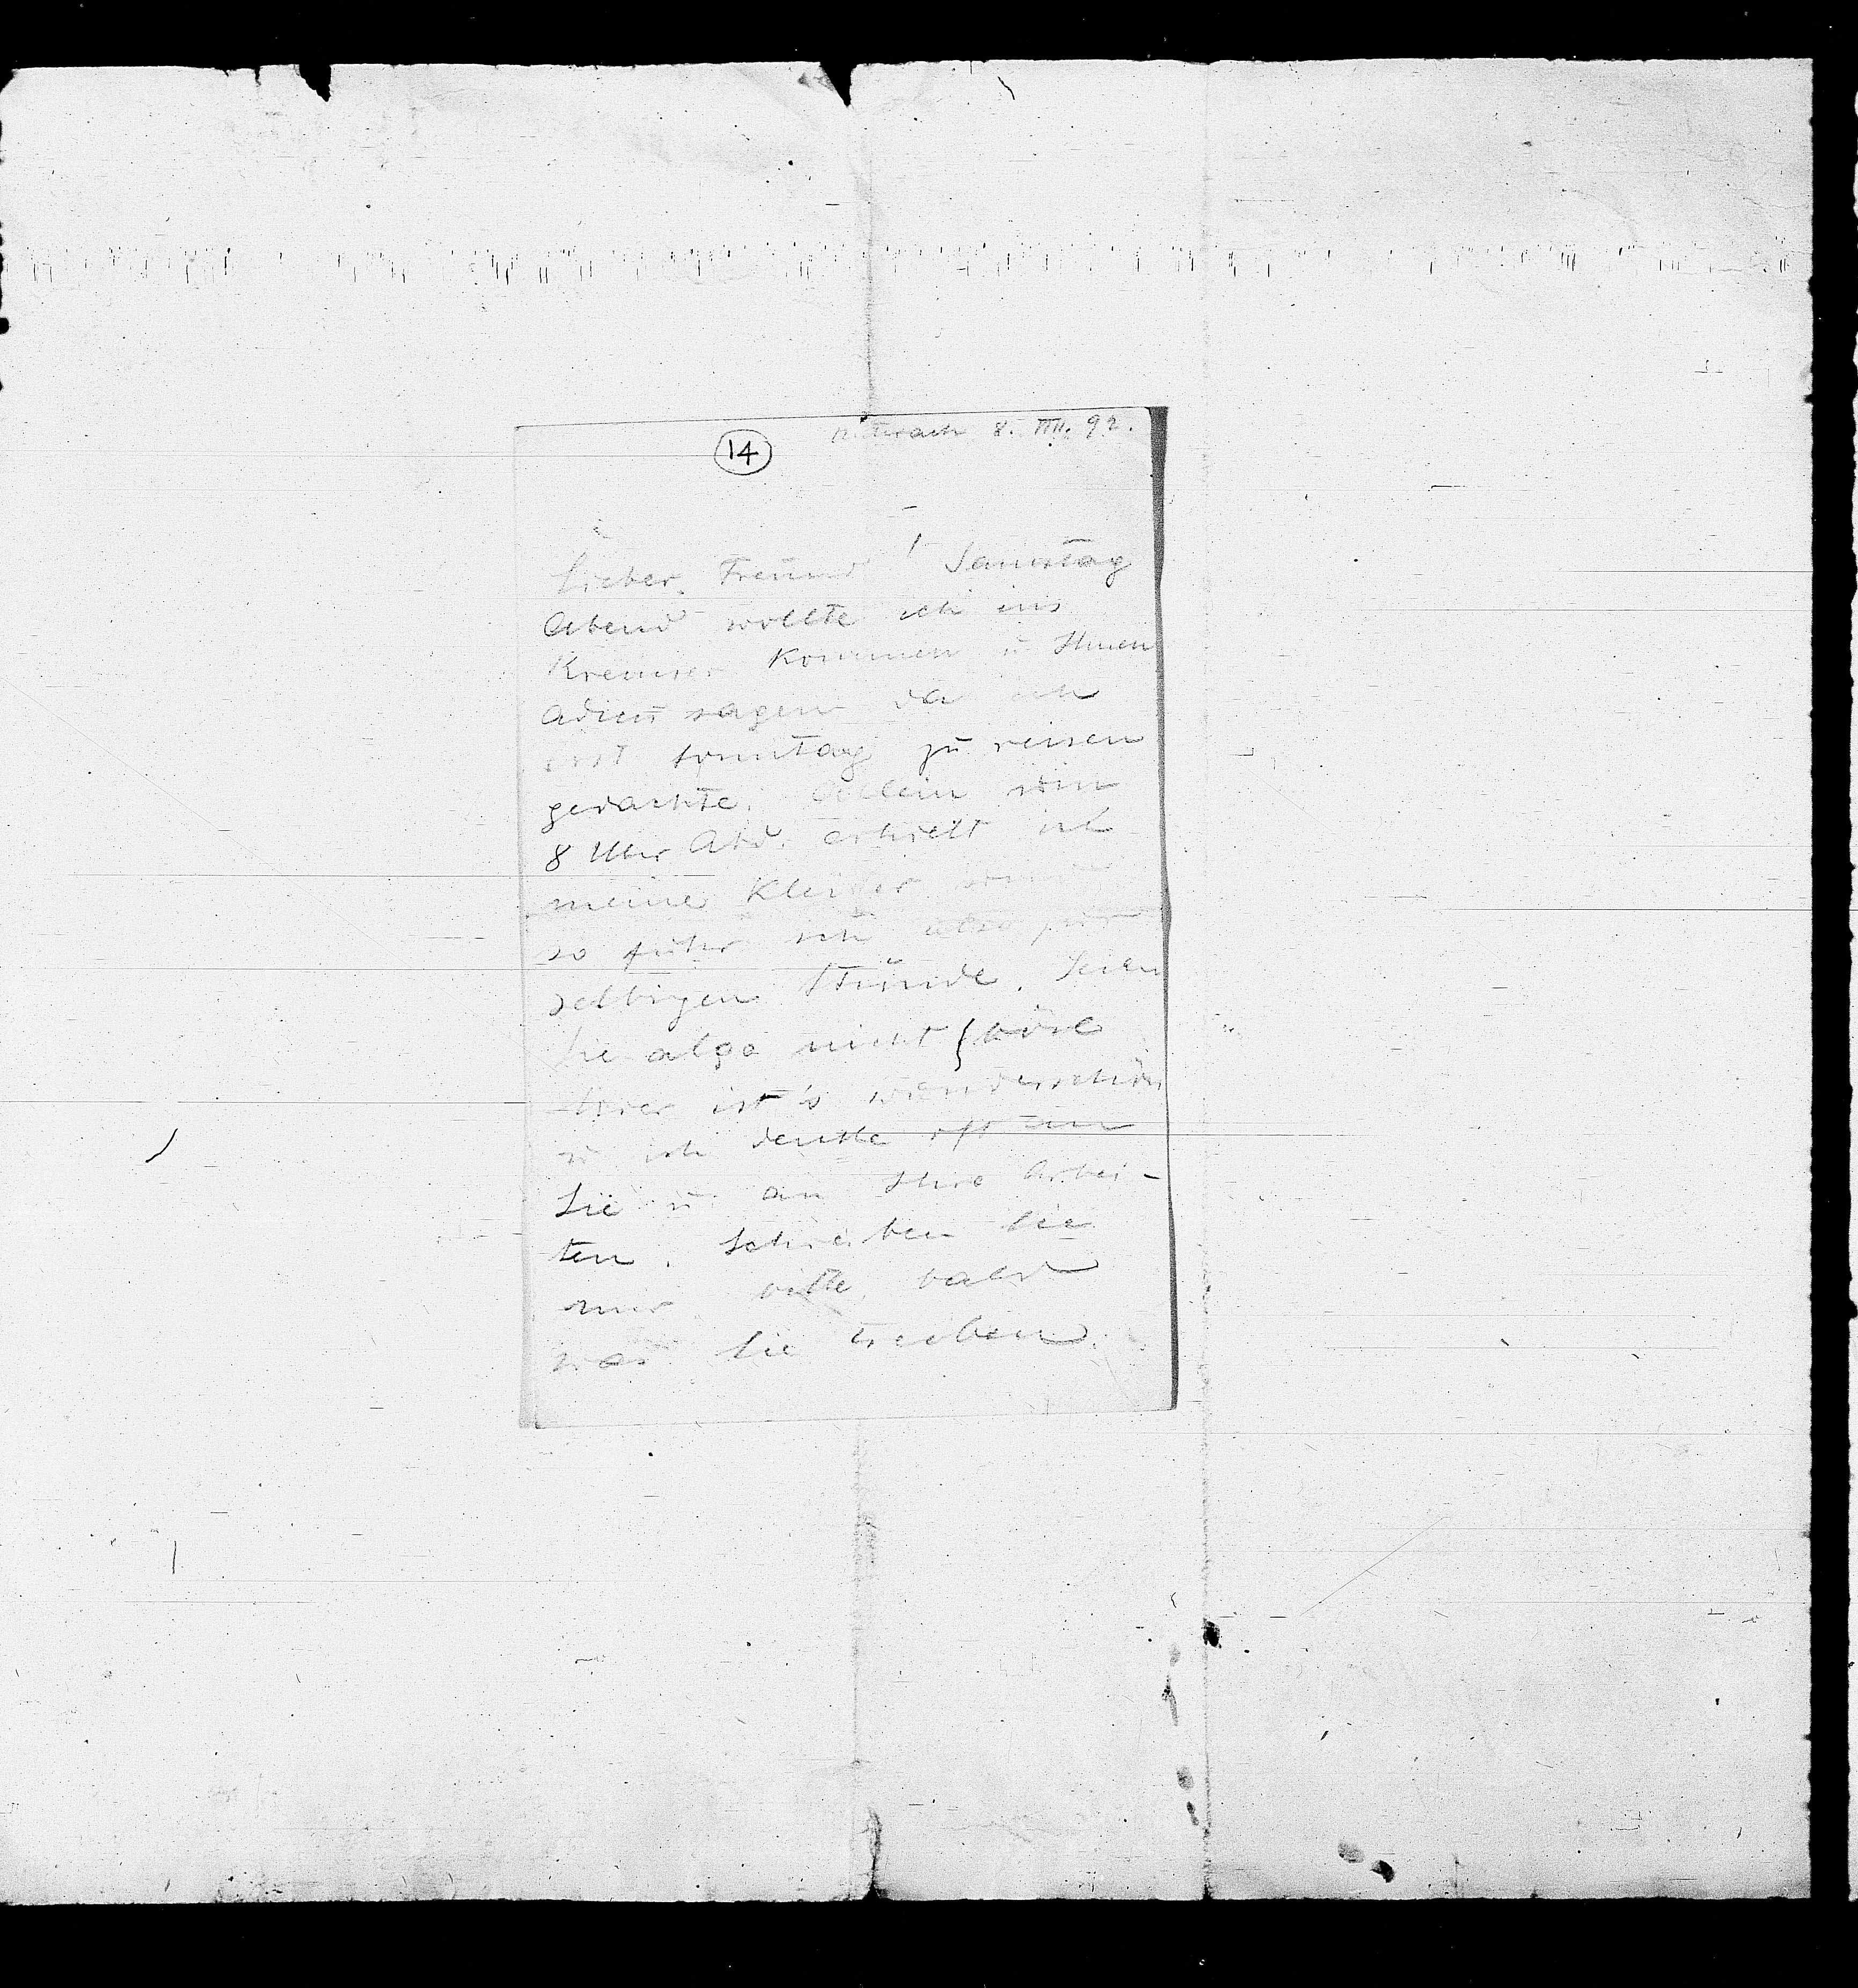 (14)
Unterach 8. VIII. 92.
Lieber Freund! Samstag
Abend wollte ich ins
Kremser kommen ū Ihnen
Adieū sagen da ich
erst Sonntag zū reisen
gedachte. Allein um
8 Uhr Abd. erhielt ich
meine Kleider und
so fuhr ich also zur
selbigen Stunde. Seien
Sie also nicht böse
Hier ist's wunderschön
ū ich denke oft an
Sie ū an Ihre Arbei-
ten. Schreiben Sie
mir bitte bald
was Sie treiben.